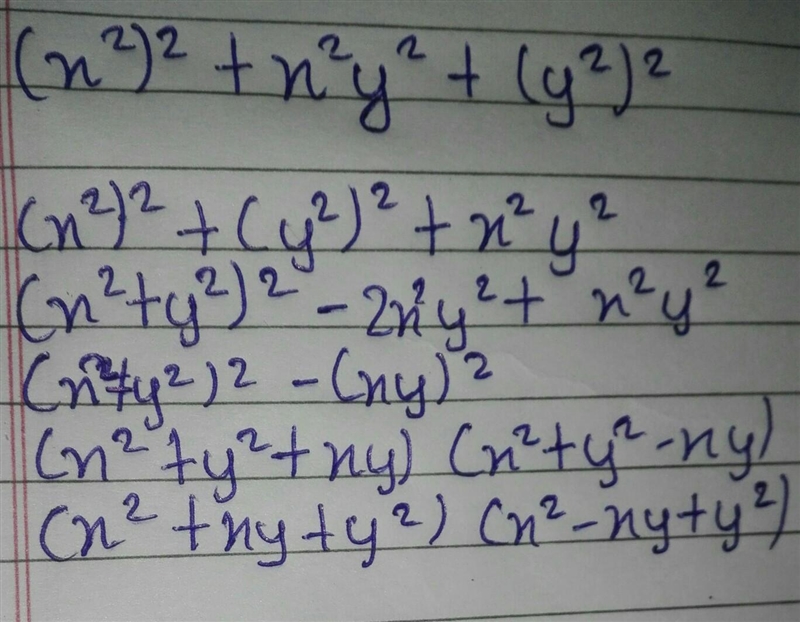 (x²)² + x²y² + (y²)²
(x²)² + (y²)² + x²y²
(x²+y²)² - 2x²y² + x²y²
(x²+y²)² - (xy)²
(x²+y²+xy) (x²+y²-xy)
(x²+xy+y²) (x²-xy+y²)